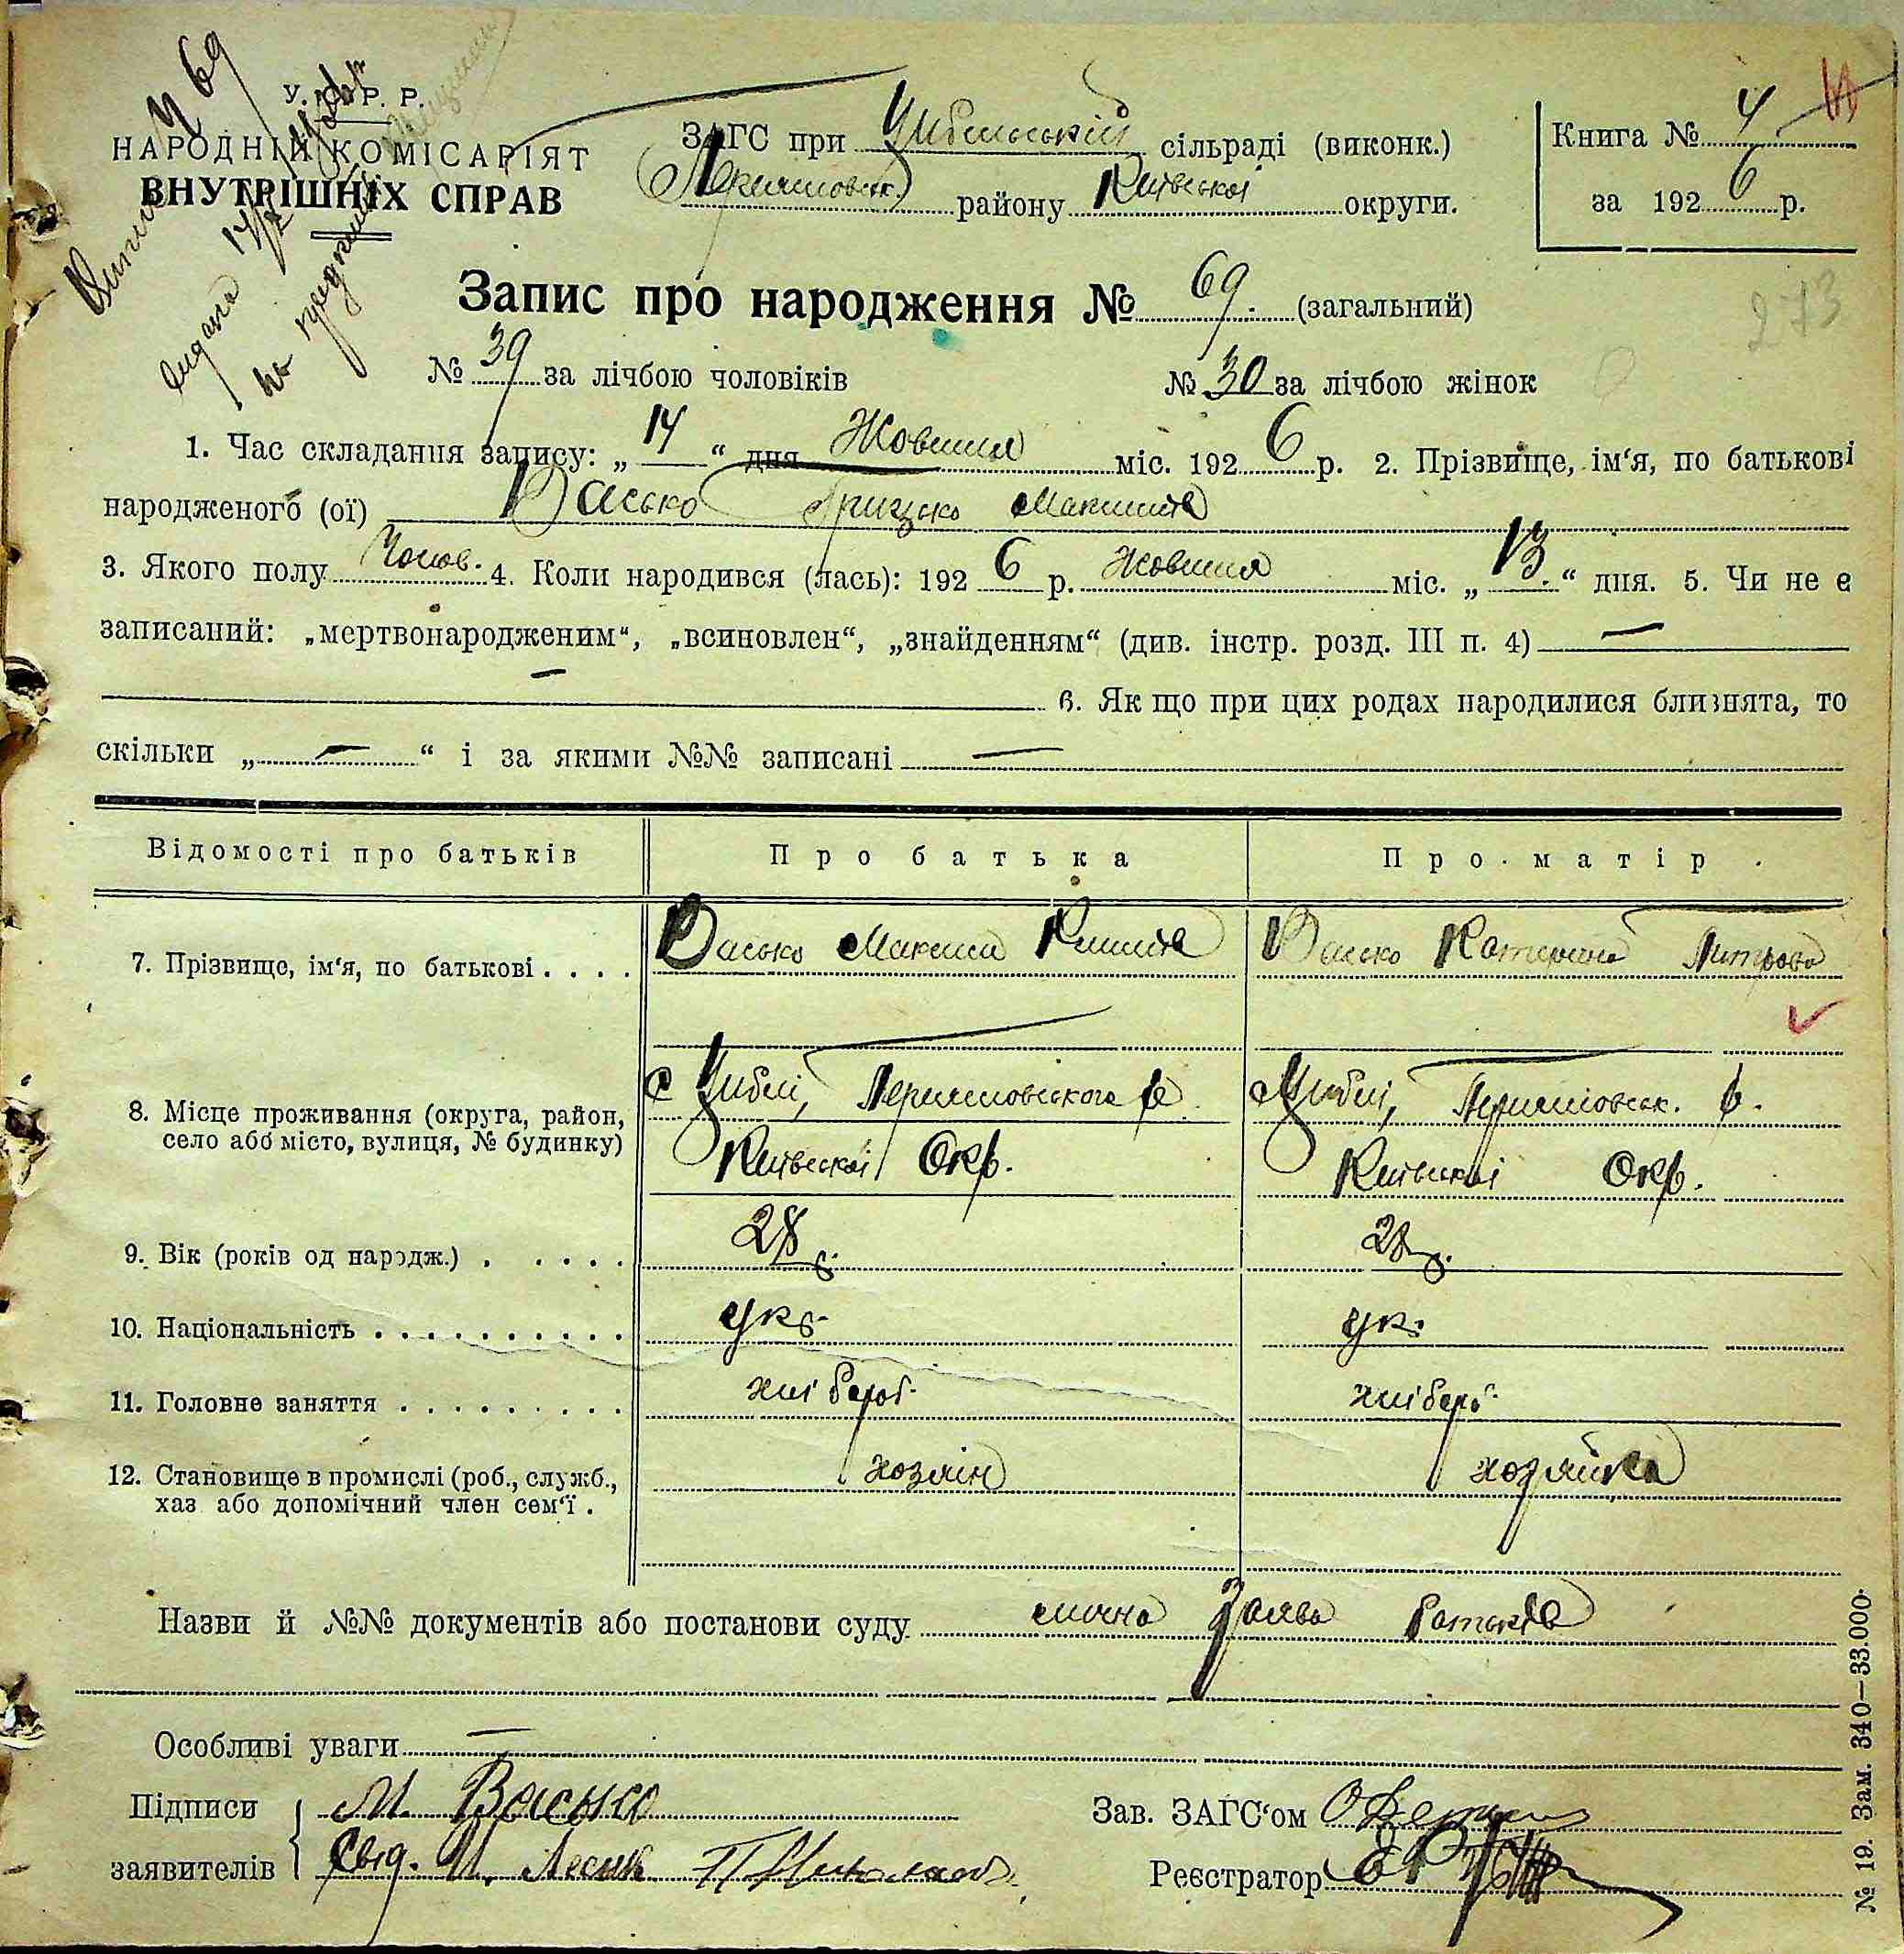 У. С. Р. Р.
НАРОДНІЙ КОМІСАРІЯТ
ВНУТРІШНІХ СПРАВ
ЗАГС при Циблиській сільраді (виконк.)
району Київської округи.
Книга № 4
за 1926 р.
Запис про народження № 69. (загальний)
273
№ 39 за лічбою чоловіків № 30 за лічбою жінок
1. Час складання запису: „14“ дня Жовтня міс. 1926 р. 2. Прізвище, ім‘я, по батькові
народженого (ої) Васько Грицько Максимів
3. Якого полу Чолов. 4. Коли народився (лась): 1926 р. Жовтня міс. „13.“ дня. 5. Чи не є
записаний: „мертвонародженим“, „всиновлен“, „знайденням“ (див. інстр. розд. III п. 4) —
— 6. Як що при цих родах народилися близнята, то
скільки „—“ і за якими №№ записані —
Відомості про батьків Про батька Про матір
7. Прізвище, ім‘я, по батькові . . . . Васько Максим Васько Катерина Питрова
8. Місце проживання (округа, район, с Циблі, р. Циблі, р.
село або місто, вулиця, № будинку) Київської Окр. Київської Окр.
9. Вік (років од народж.) . . . . . 28 28
10. Національність . . . . . . . . . . укр. ук.
11. Головне заняття . . . . . . . . . хлібороб. хлібороб.
12. Становище в промислі (роб., служб., хозяїн хозяйка
хаз або допомічний член сем‘ї .
Назви й №№ документів або постанови суду лична заява батьків
Особливі уваги —
Підписи М. Васько Зав. ЗАГС‘ом
заявителів Свід. Реєстратор
№ 19. Зам. 340—33.000.